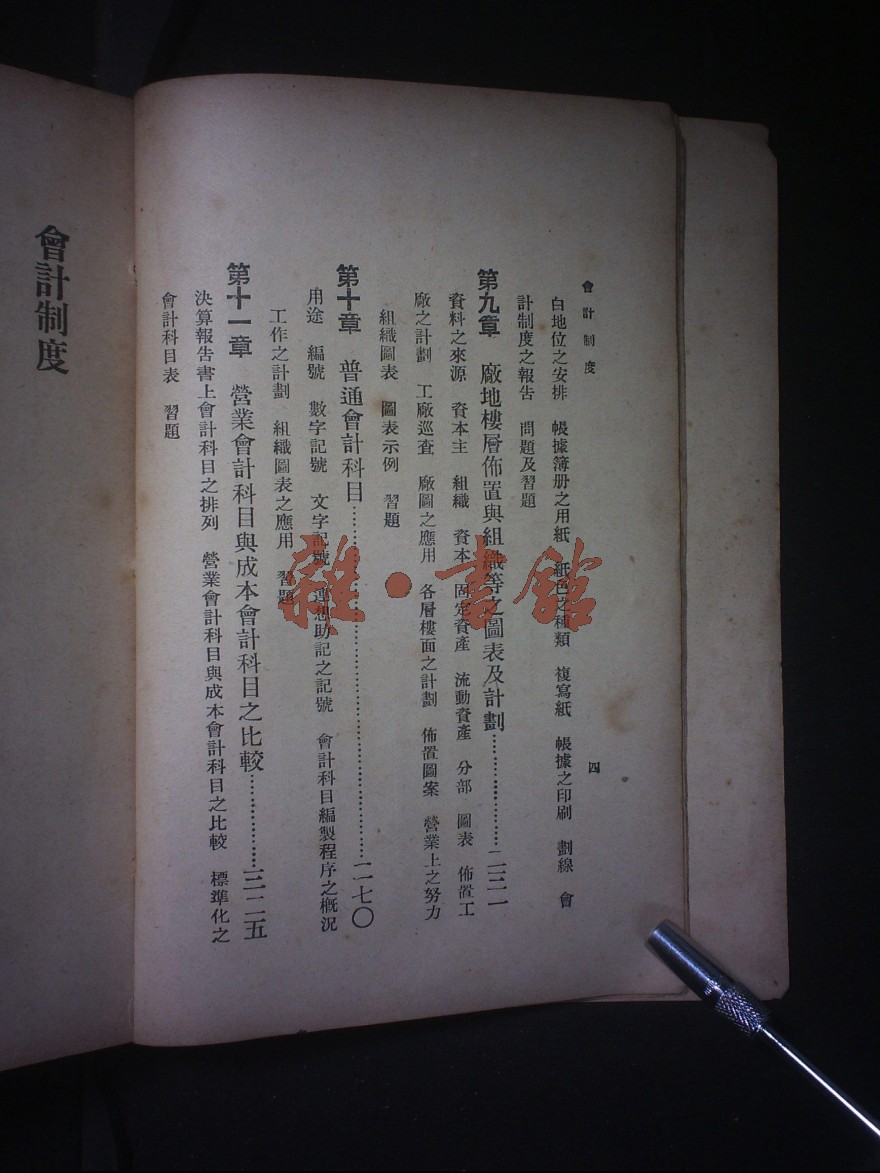 會計制度
四
白地位之安排　帳據簿册之用紙　紙色之種類　複寫紙　帳據之印刷　劃線　會
計制度之報告　問題及習題
第九章　廠地樓層佈置與組織等之圖表及計劃………………二三一
資料之來源　資本主　組織　資本　固定資產　流動資產　分部　圖表　佈置工
廠之計劃　工廠巡查　廠圖之應用　各層樓面之計劃　佈置圖案　營業上之努力
組織圖表　圖表示例　習題
第十章　普通會計科目………………二七〇
用途　編號　數字記號　文字記號　連想助記之記號　會計科目編製程序之概況
工作之計劃　組織圖表之應用　習題
第十一章　營業會計科目與成本會計科目之比較………………三二五
決算報告書上會計科目之排列　營業會計科目與成本會計科目之比較　標準化之
會計科目表　習題
會計制度
雜·書館